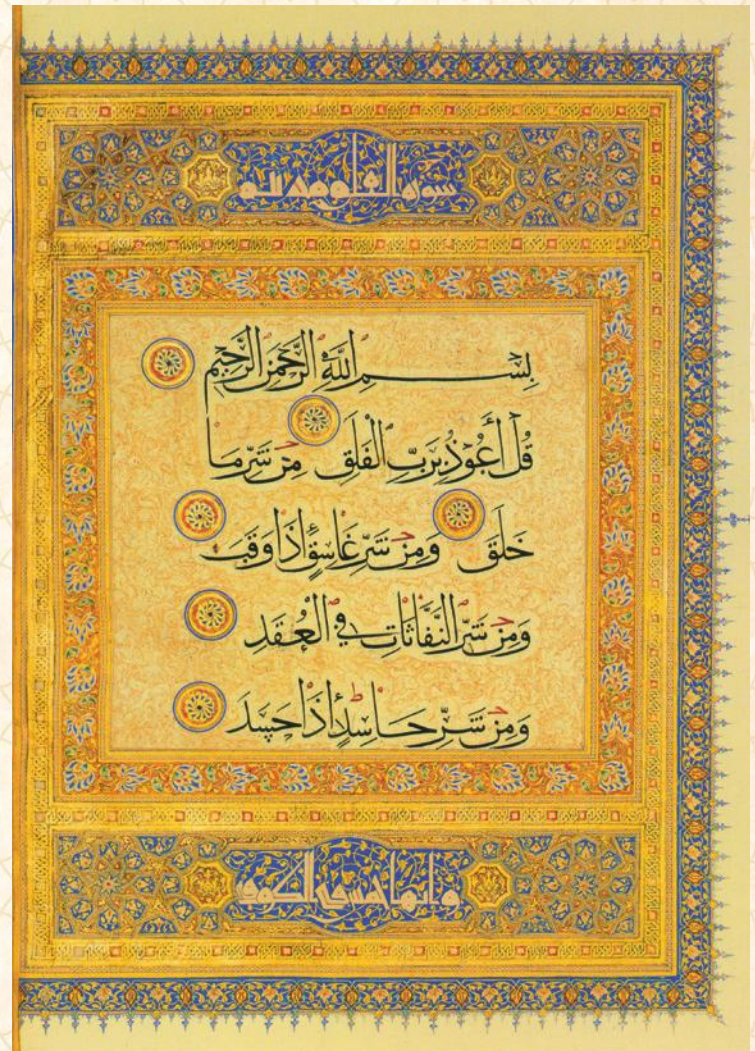 سورة الفلق
بِسْمِ اللَّهِ الرَّحْمَنِ الرَّحِيمِ
قُلْ أَعُوذُ بِرَبِّ الْفَلَقِ مِنْ شَرِّ مَا
خَلَقَ وَمِنْ شَرِّ غَاسِقٍ إِذَا وَقَبَ
وَمِنْ شَرِّ النَّفَّاثَاتِ فِي الْعُقَدِ
وَمِنْ شَرِّ حَاسِدٍ إِذَا حَسَدَ
وايها خمس